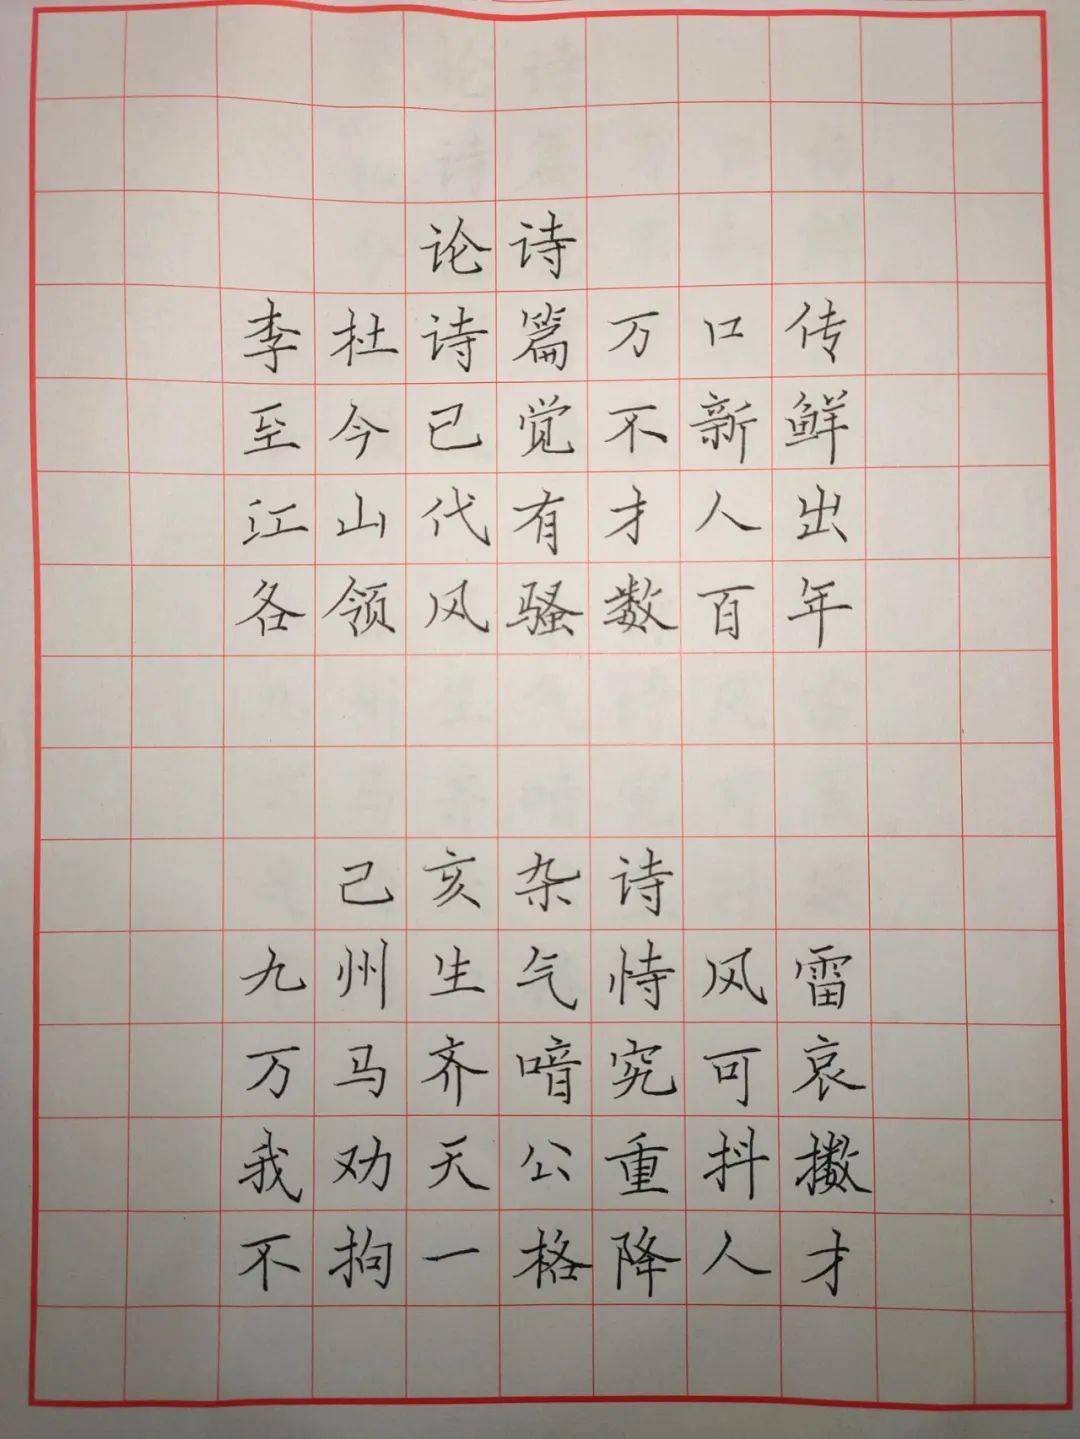 论诗
李杜诗篇万口传
至今已觉不新鲜
江山代有才人出
各领风骚数百年
己亥杂诗
九州生气恃风雷
万马齐喑究可哀
我劝天公重抖擞
不拘一格降人才